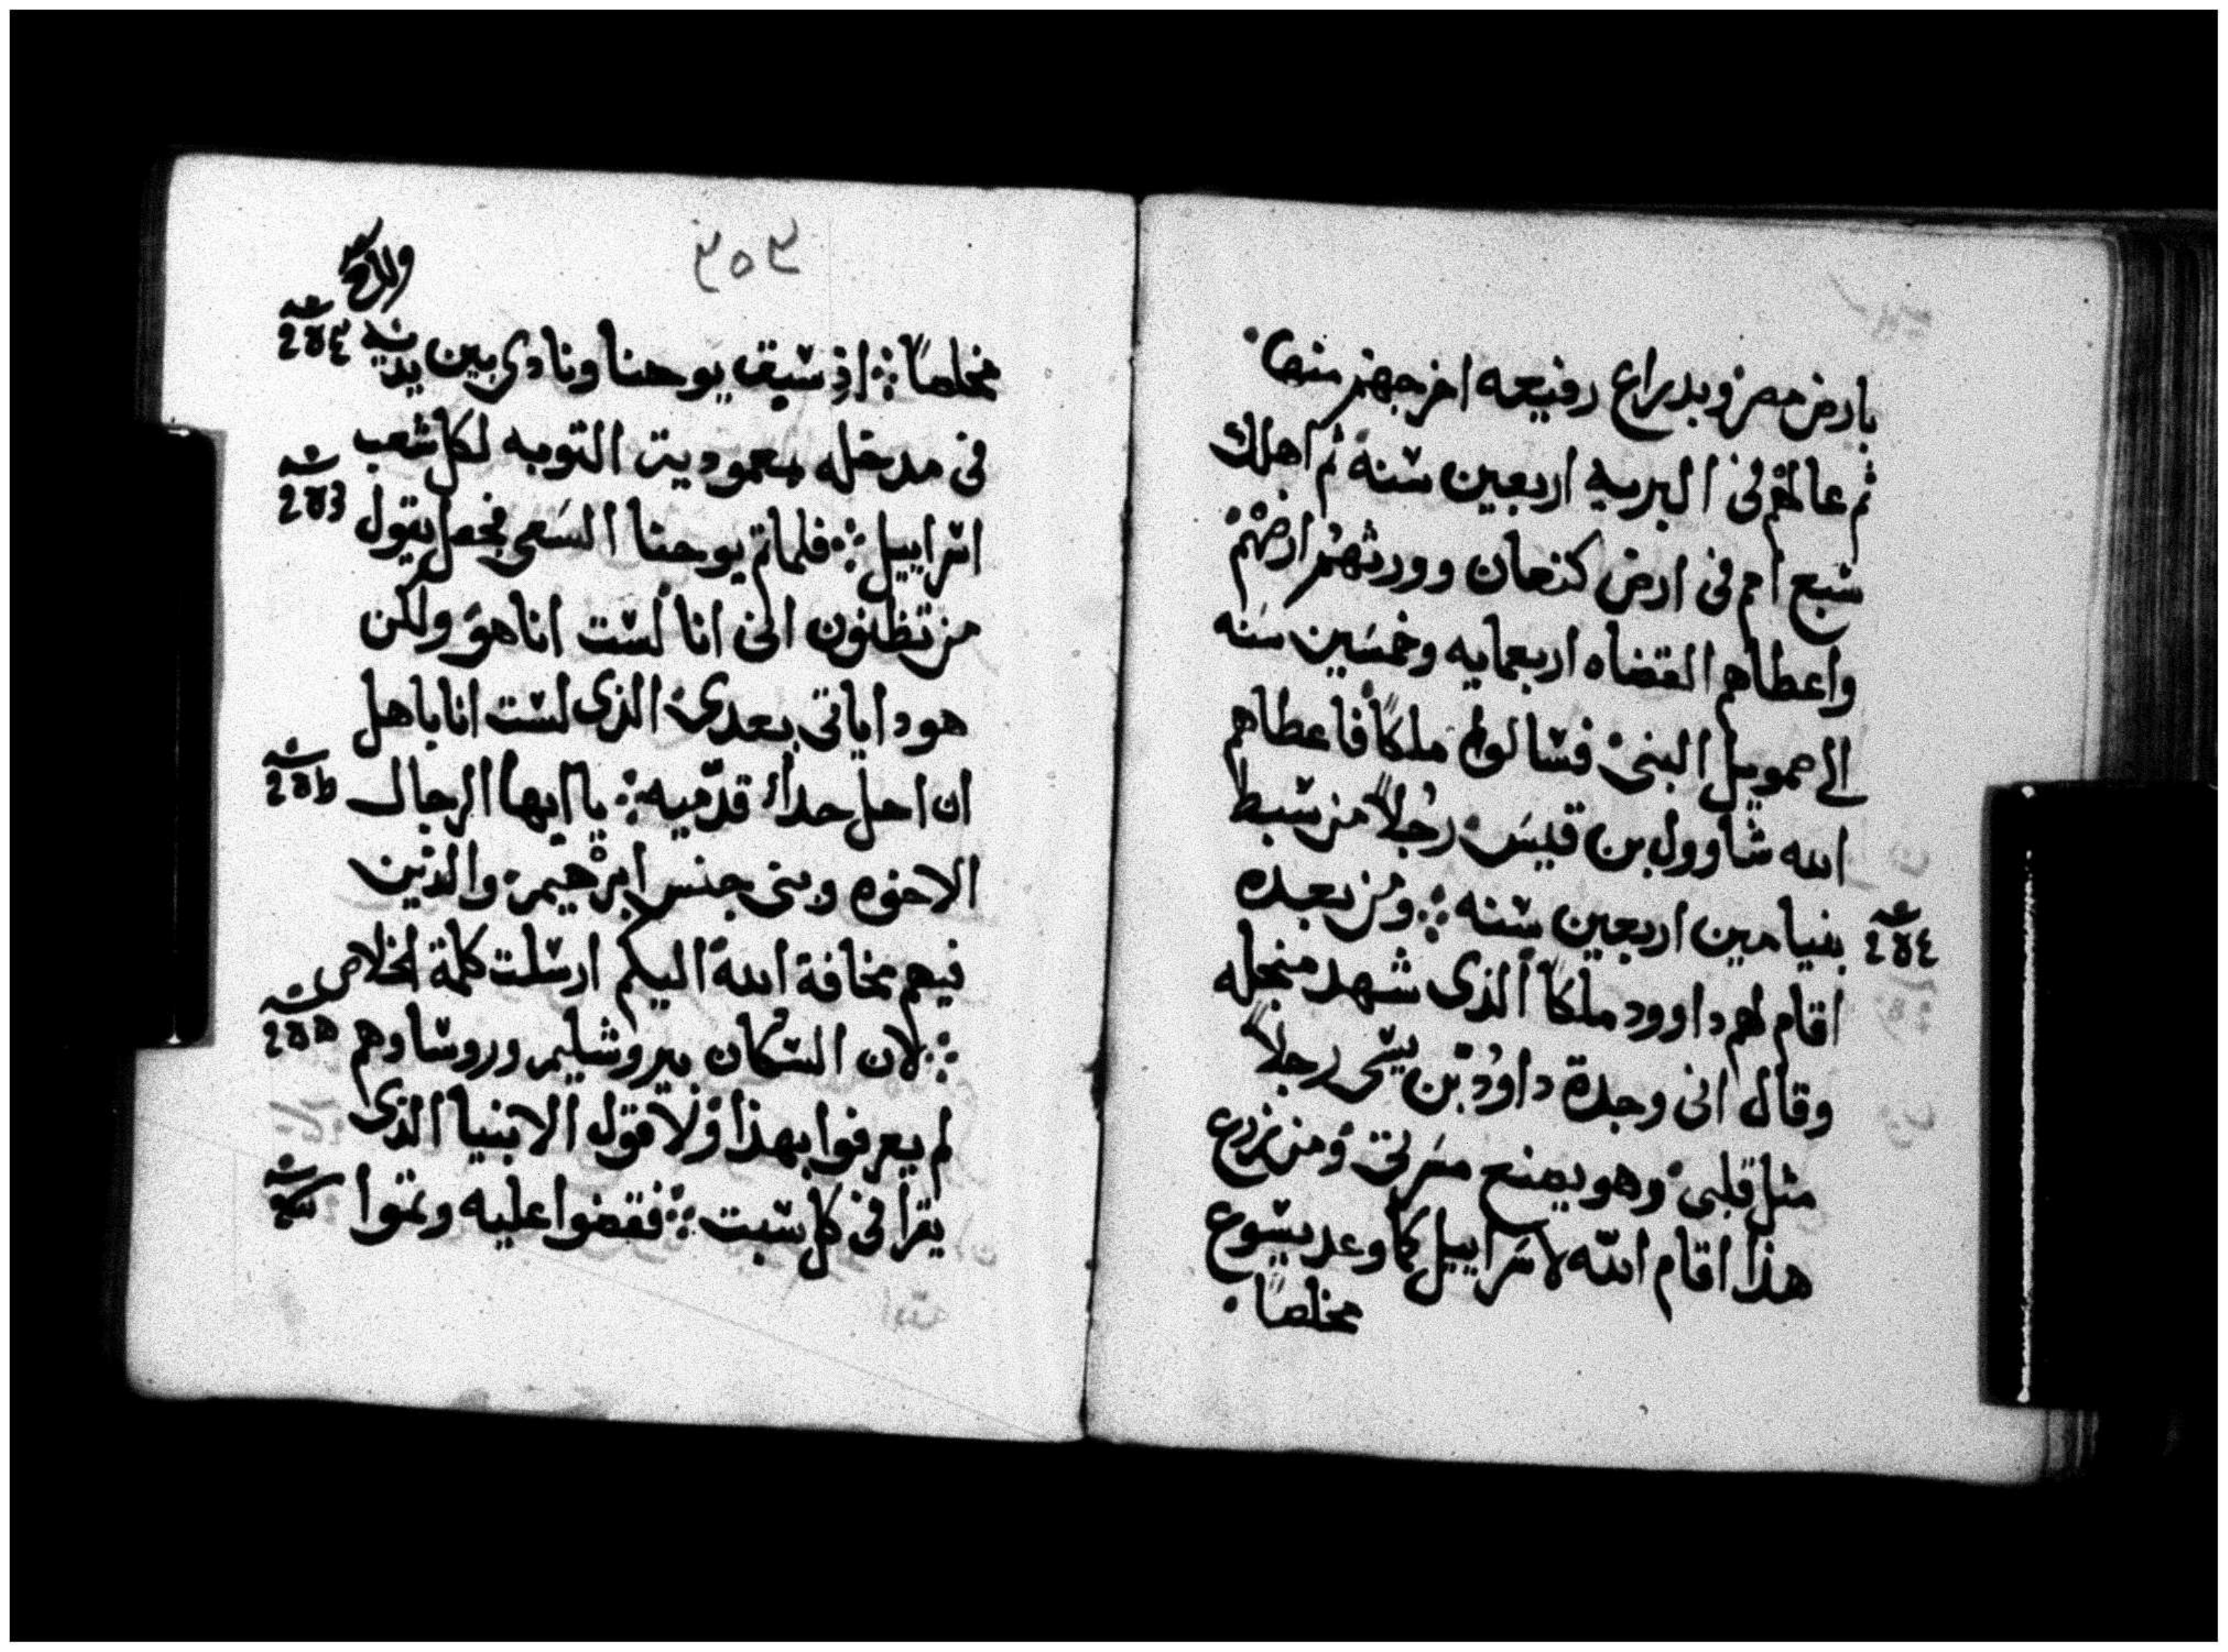 بارض مصر وبدراع رفيعه اخرجهم منها
ثم عالهم فى البريه اربعين سنة ثم اهلك
سبع امم فى ارض كنعان وورثهم ارضهم
واعطاهم القضاه اربعمايه وخمسين سنه
الى صمويل النبى فسالوا ملكاً فاعطاهم
الله شاوول بن قيس رجلاً من سبط
بنيامين اربعين سنه ومن بعده
اقام لهم داوود ملكاً الذى شهد منجله
وقال انى وجدة داوُد بن يسّى رجلاً
مثل قلبى وهو يصنع مسرتى ومن زرع
هذا اقام اللّه لاسراييل كما وعد يسوع
مخلصاً
٣٥٣
مخلصاً اذ سبق يوحنا ونادى بين يديه
فى مدخله بمعودية التوبه لكل شعب
اسراييل فلما تم يوحنا السعى فجعل يقول
من تظنون انى انا لست انا هو ولكن
هوذا ياتى بعدى الذى لست انا باهل
ان احل حداء قدميه يا ايها الرجال
الاخوه وبنى جنس ابرهيم والذين
فيهم مخافة الله اليكم ارسلت كلمة الخلاص
لان السكان بيروشليم وروساوهم
لم يعرفوا بهذا ولا قول الانبيا الذى
يقرا فى كل سبت فقضوا عليه وتموا